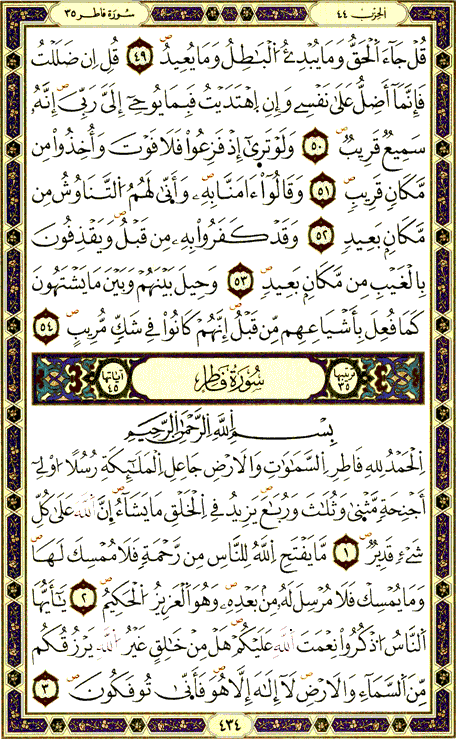 الحزب ٤٤ سُورَة فَاطِر ٣٥
قُلْ جَآءَ اَلْحَقُّ وَمَا يُبْدِئُ اُلْبَٰطِلُ وَمَا يُعِيدُ ٤٩ قُلِ اِن ضَلَلْتُ
فَإِنَّمَآ أَضِلُّ عَلَىٰ نَفْسِے وَإِنِ اِهْتَدَيْتُ فَبِمَا يُوحِےٓ إِلَىَّ رَبِّىَ إِنَّهُۥ
سَمِيعٌ قَرِيبٌ ٥٠ وَلَوْ تَرَىٰٓ إِذْ فَزِعُواْ فَلَا فَوْتَ وَأُخِذُواْ مِن
مَّكَانٍ قَرِيبٍ ٥١ وَقَالُوٓاْ ءَامَنَّا بِهِۦ وَأَنَّىٰ لَهُمُ اُلتَّنَاوُشُ مِن
مَّكَانٍ بَعِيدٍ ٥٢ وَقَدْ كَفَرُواْ بِهِۦ مِن قَبْلُ وَيَقْذِفُونَ
بِالْغَيْبِ مِن مَّكَانٍ بَعِيدٍ ٥٣ وَحِيلَ بَيْنَهُمْ وَبَيْنَ مَا يَشْتَهُونَ
كَمَا فُعِلَ بِأَشْيَاعِهِم مِّن قَبْلُ إِنَّهُمْ كَانُواْ فِے شَكٍّ مُّرِيبٍ ٥٤
ترتيبها ٣٥ سُورَةُ فَاطِر آياتها ٤٥
بِسْمِ اِللَّهِ اِلرَّحْمَٰنِ اِلرَّحِيمِ
اِلْحَمْدُ لِلهِ فَاطِرِ اِلسَّمَٰوَٰتِ وَالَارْضِ جَاعِلِ اِلْمَلَٰٓئِكَةِ رُسُلًا ا۟وْلِےٓ
أَجْنِحَةٍ مَّثْنَىٰ وَثُلَٰثَ وَرُبَٰعَ يَزِيدُ فِے اِلْخَلْقِ مَا يَشَآءُ اِنَّ اَللَّهَ عَلَىٰ كُلِّ
شَےْءٍ قَدِيرٌ ١ مَّا يَفْتَحِ اِللَّهُ لِلنَّاسِ مِن رَّحْمَةٍ فَلَا مُمْسِكَ لَهَا
وَمَا يُمْسِكْ فَلَا مُرْسِلَ لَهُۥ مِنۢ بَعْدِهِۦ وَهُوَ اَلْعَزِيزُ اُلْحَكِيمُ ٢ يَٰٓأَيُّهَا
اَلنَّاسُ اُذْكُرُواْ نِعْمَتَ اَللَّهِ عَلَيْكُمْ هَلْ مِنْ خَٰلِقٍ غَيْرُ اُللَّهِ يَرْزُقُكُم
مِّنَ اَلسَّمَآءِ وَالَارْضِ لَآ إِلَٰهَ إِلَّا هُوَ فَأَنَّىٰ تُوفَكُونَ ٣
٤٣٤